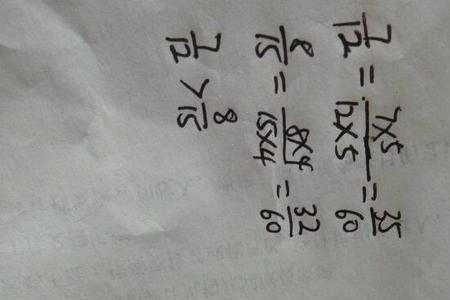 7/12 = 7×5/12×5 = 35/60
8/15 = 8×4/15×4 = 32/60
7/12 > 8/15